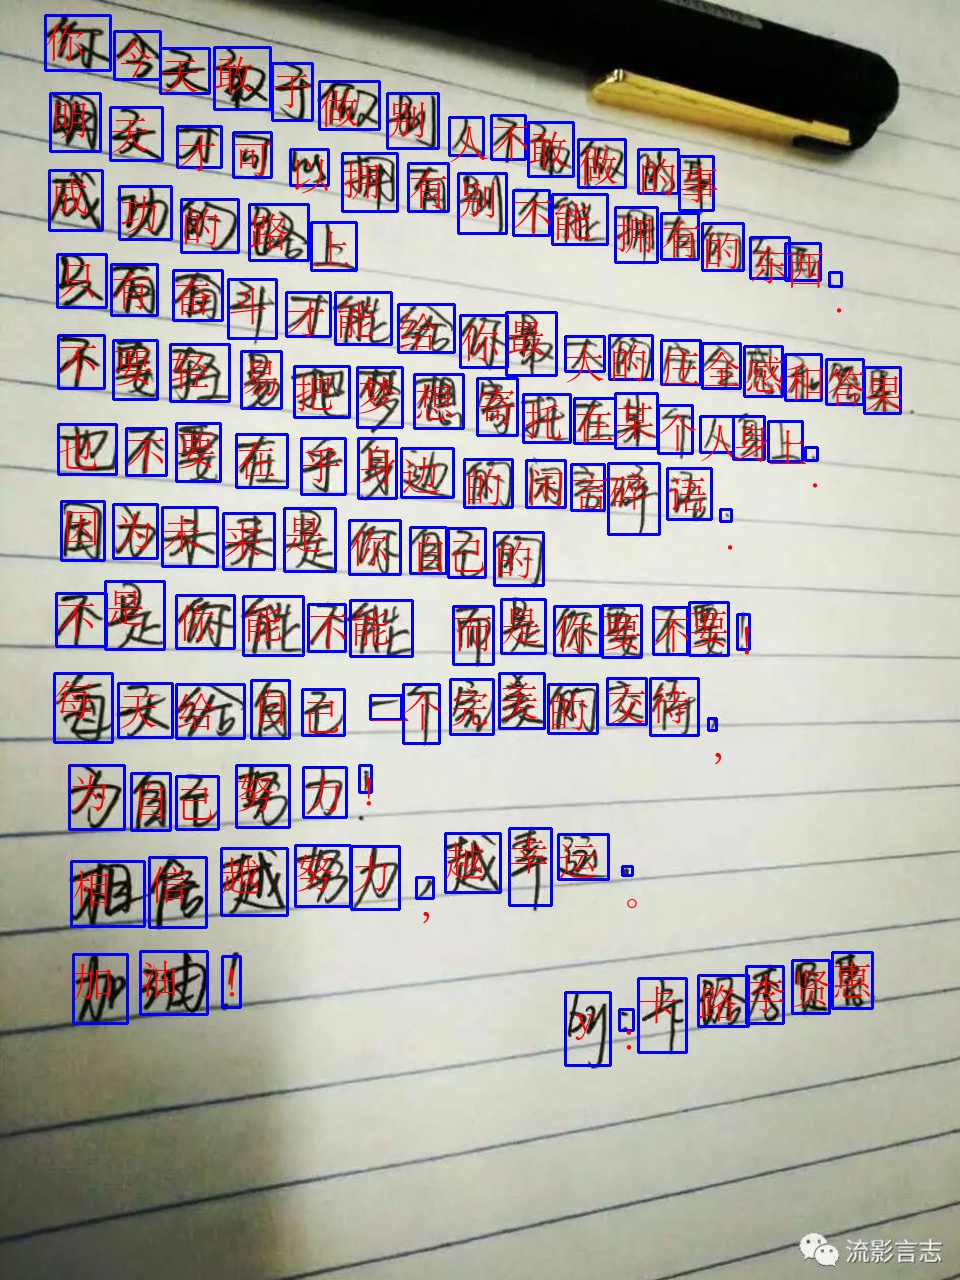 你今天敢于做别人不敢做的事
明天才可以拥有别不能拥有的东西.
成功的路上
只有奋斗才能给你最大的安全感和答果.
不要轻易把梦想寄托在某个人身上.
也不要在乎身边的闲言碎语.
因为未来是你自己的
不是你能不能 而是你要不要!
每天给自己一个完美的交待,
为自己努力!
相信越努力,越幸运。
加油!
by:卡路秀贤惠
流影言志